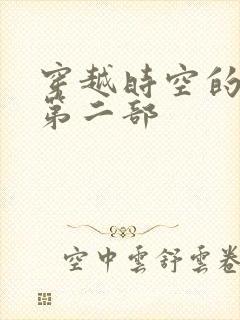 穿越時空的
第二部
空中雲舒雲卷